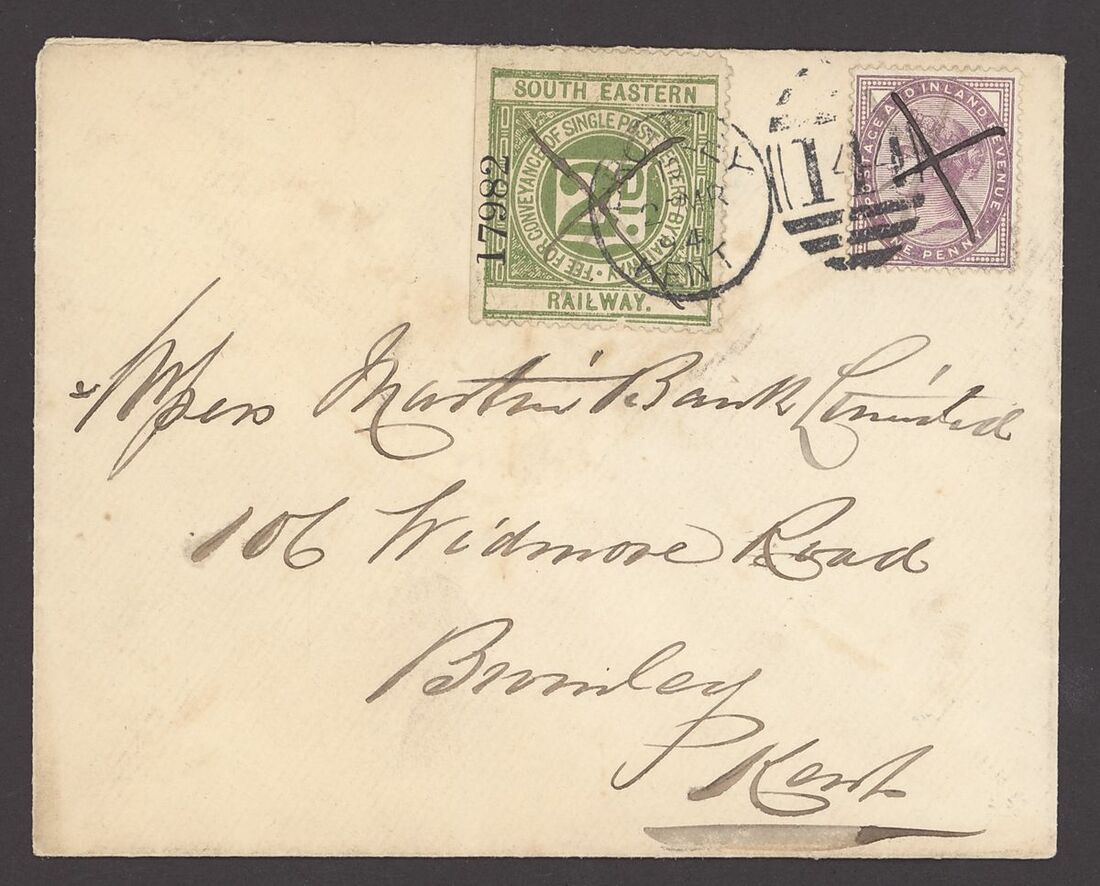 SOUTH EASTERN
FEE FOR CONVEYANCE OF SINGLE POST LETTERS BY RAILWAY
2D.
RAILWAY.
17982
MR
94
KENT
14
POSTAGE AND INLAND REVENUE.
ONE PENNY
Messrs Martin's Bank Limited
106 Widmore Road
Bromley
Kent